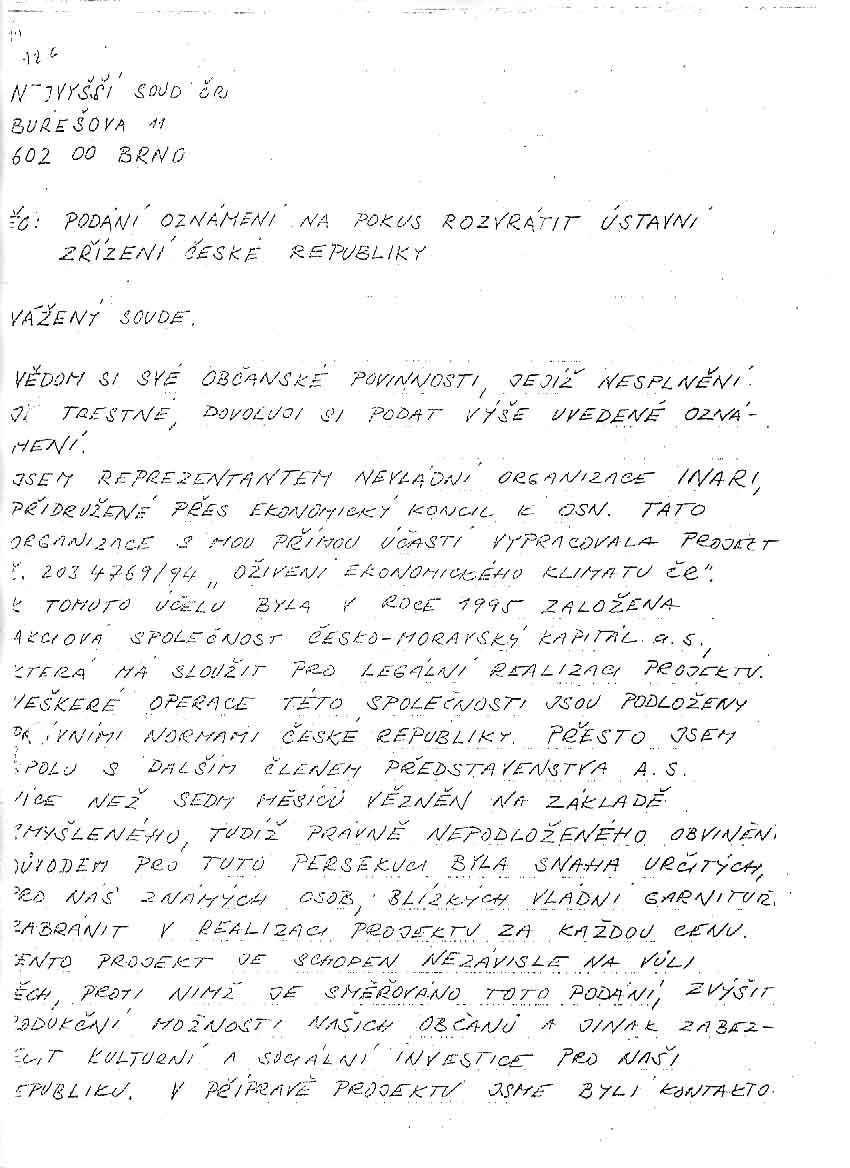 12 6
N JVYŠŠÍ SOUD ČR
BUREŠOVA 11
602 00 BRNO
ĚC: PODÁNÍ OZNÁMENÍ NA POKUS ROZVRÁTIT ÚSTAVNÍ
ZŘÍZENÍ ČESKÉ REPUBLIKY
VÁŽENÝ SOUDE.
VĚDOM SI SVÉ OBČANSKÉ POVINNOSTI, JEJÍŽ NESPLNĚNÍ
JE TRESTNÉ, DOVOLUJI SI PODAT VÝŠE UVEDENÉ OZNÁ-
MENÍ.
JSEM REPREZENTANTEM NEVLÁDNÍ ORGANIZACE INARI,
PŘIDRUŽENÉ PŘES EKONOMICKÝ KONCIL K OSN. TATO
ORGANIZACE S MOU PŘÍMOU ÚČASTÍ VYPRACOVALA PROJEKT
Č. 203 4769/94 „OŽIVENÍ EKONOMICKÉHO KLIMATU ČR".
K TOMUTO ÚČELU BYLA V ROCE 1995 ZALOŽENA
AKCIOVÁ SPOLEČNOST ČESKO-MORAVSKÝ KAPITÁL a.s.,
KTERÁ MÁ SLOUŽIT PRO LEGÁLNÍ REALIZACI PROJEKTU.
VEŠKERÉ OPERACE TÉTO SPOLEČNOSTI JSOU PODLOŽENY
PRÁVNÍMI NORMAMI ČESKÉ REPUBLIKY. PŘESTO JSEM
SPOLU S DALŠÍM ČLENEM PŘEDSTAVENSTVA A.S.
VÍCE NEŽ SEDM MĚSÍCŮ VĚZNĚN NA ZÁKLADĚ
SMYŠLENÉHO, TUDÍŽ PRÁVNĚ NEPODLOŽENÉHO OBVINĚNÍ
DŮVODEM PRO TUTO PERSEKUCI BYLA SNAHA URČITÝCH,
PRO NÁS ZNÁMÝCH OSOB, BLÍZKÝCH VLÁDNÍ GARNITUŘE
ZABRÁNIT V REALIZACI PROJEKTU ZA KAŽDOU CENU.
TENTO PROJEKT JE SCHOPEN NEZÁVISLE NA VŮLI
TĚCH, PROTI NIMŽ JE SMĚŘOVÁNO TOTO PODÁNÍ, ZVÝŠIT
PRODUKČNÍ MOŽNOSTI NAŠICH OBČANŮ A JINAK ZABEZ-
PEČIT KULTURNÍ A SOCIÁLNÍ INVESTICE PRO NAŠI
REPUBLIKU. V PŘÍPRAVĚ PROJEKTU JSME BYLI KONTAKTO-